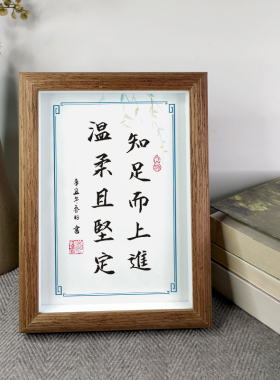 知足而上進
溫柔且堅定